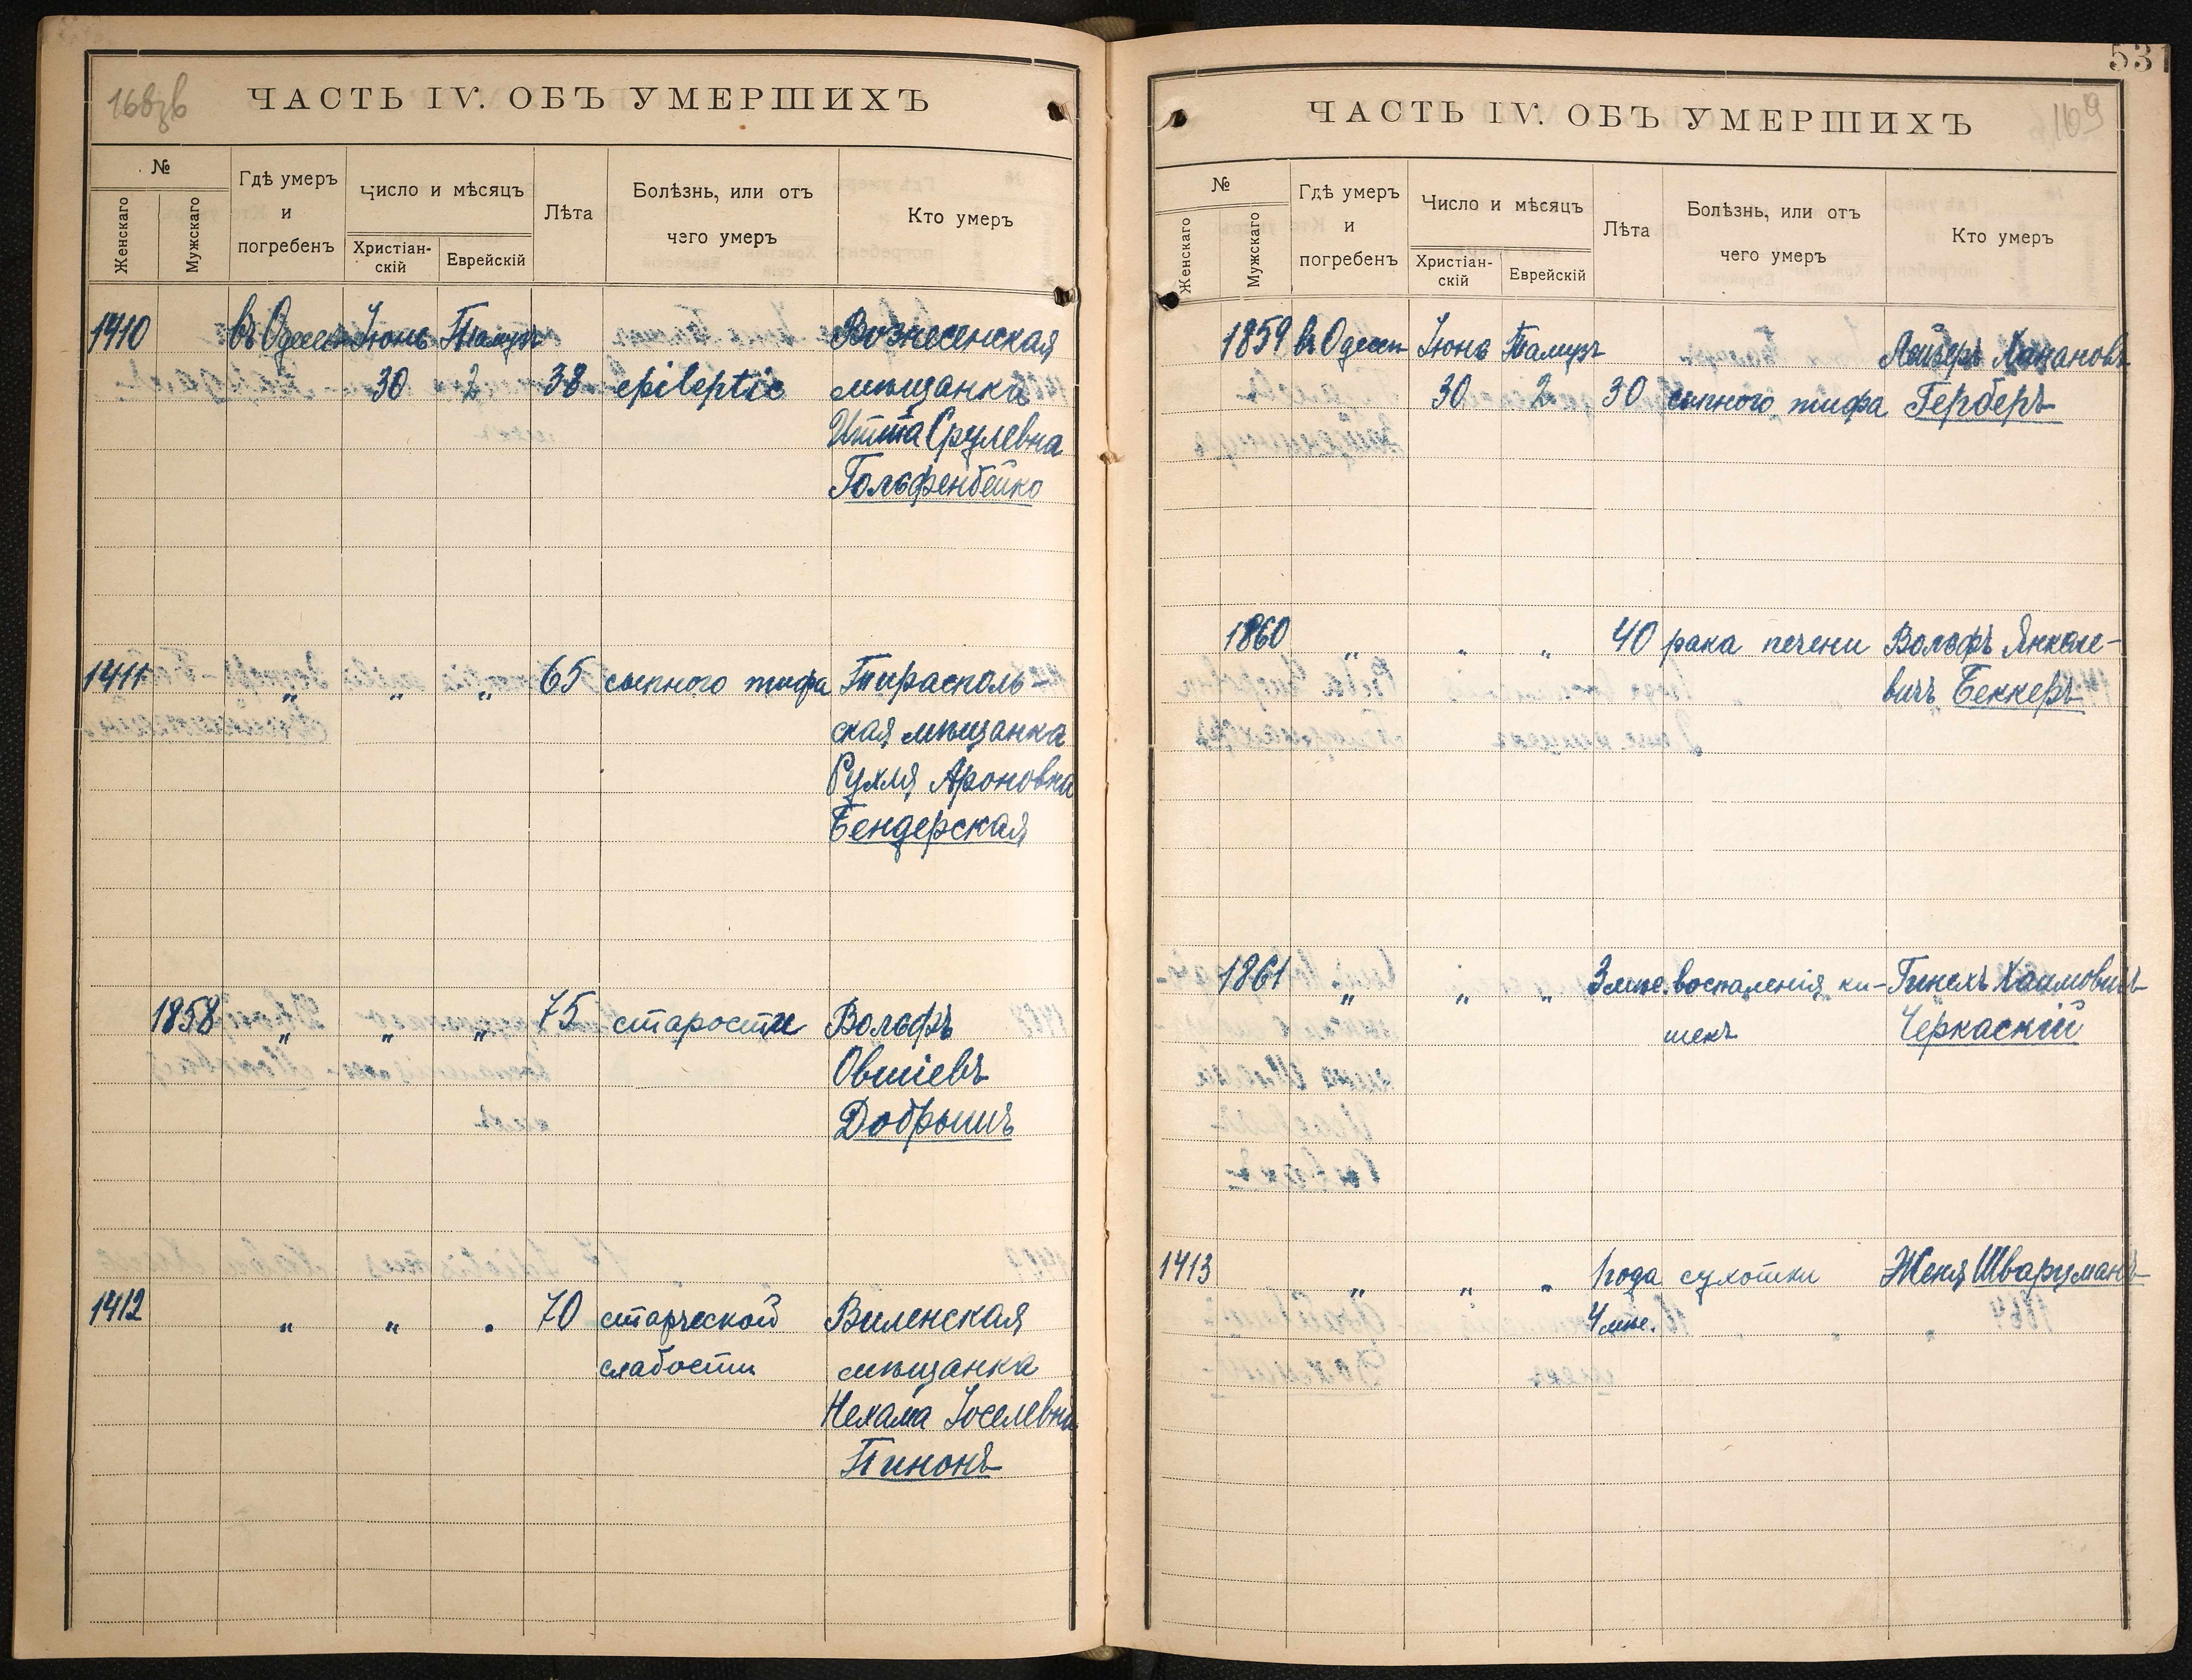 ЧАСТЬ IV. ОБЪ УМЕРШИХЪ
№
Женскаго
Мужскаго
Гдѣ умеръ
и
погребенъ
Число и мѣсяцъ
Христіан-
скій
Еврейскій
Лѣта
Болѣзнь, или отъ
чего умеръ
Кто умеръ
1410 въ Одессѣ Іюнь Тамузъ Вознесенская
30 2 38 epileptic мѣщанка
Итта Срулевна
Гольфенбейко
1411 „ „ „ 65 сыпного тифа Тирасполь-
ская мѣщанка
Рухля Ароновна
Бендерская
1858 „ „ „ 75 старости Вольфъ
Овшіевъ
Добрышъ
1412 „ „ „ 70 старческой Виленская
слабости мѣщанка
Нехама Іоселевна
Пинонъ
531
109
ЧАСТЬ IV. ОБЪ УМЕРШИХЪ
№
Женскаго
Мужскаго
Гдѣ умеръ
и
погребенъ
Число и мѣсяцъ
Христіан-
скій
Еврейскій
Лѣта
Болѣзнь, или отъ
чего умеръ
Кто умеръ
1859 въ Одессѣ Іюнь Тамузъ Лейзеръ Ханановъ
30 2 30 сыпного тифа Герберъ
1860 „ „ „ 40 рака печени Вольфъ Янкеле-
вичъ Беккеръ
1861 „ „ „ 3 мѣс. воспаленія ки- Гинехъ Хаимовичъ
шекъ Черкаскій
1413 „ „ „ 1 года сухотки Женя Шварцманъ
4 мѣс.